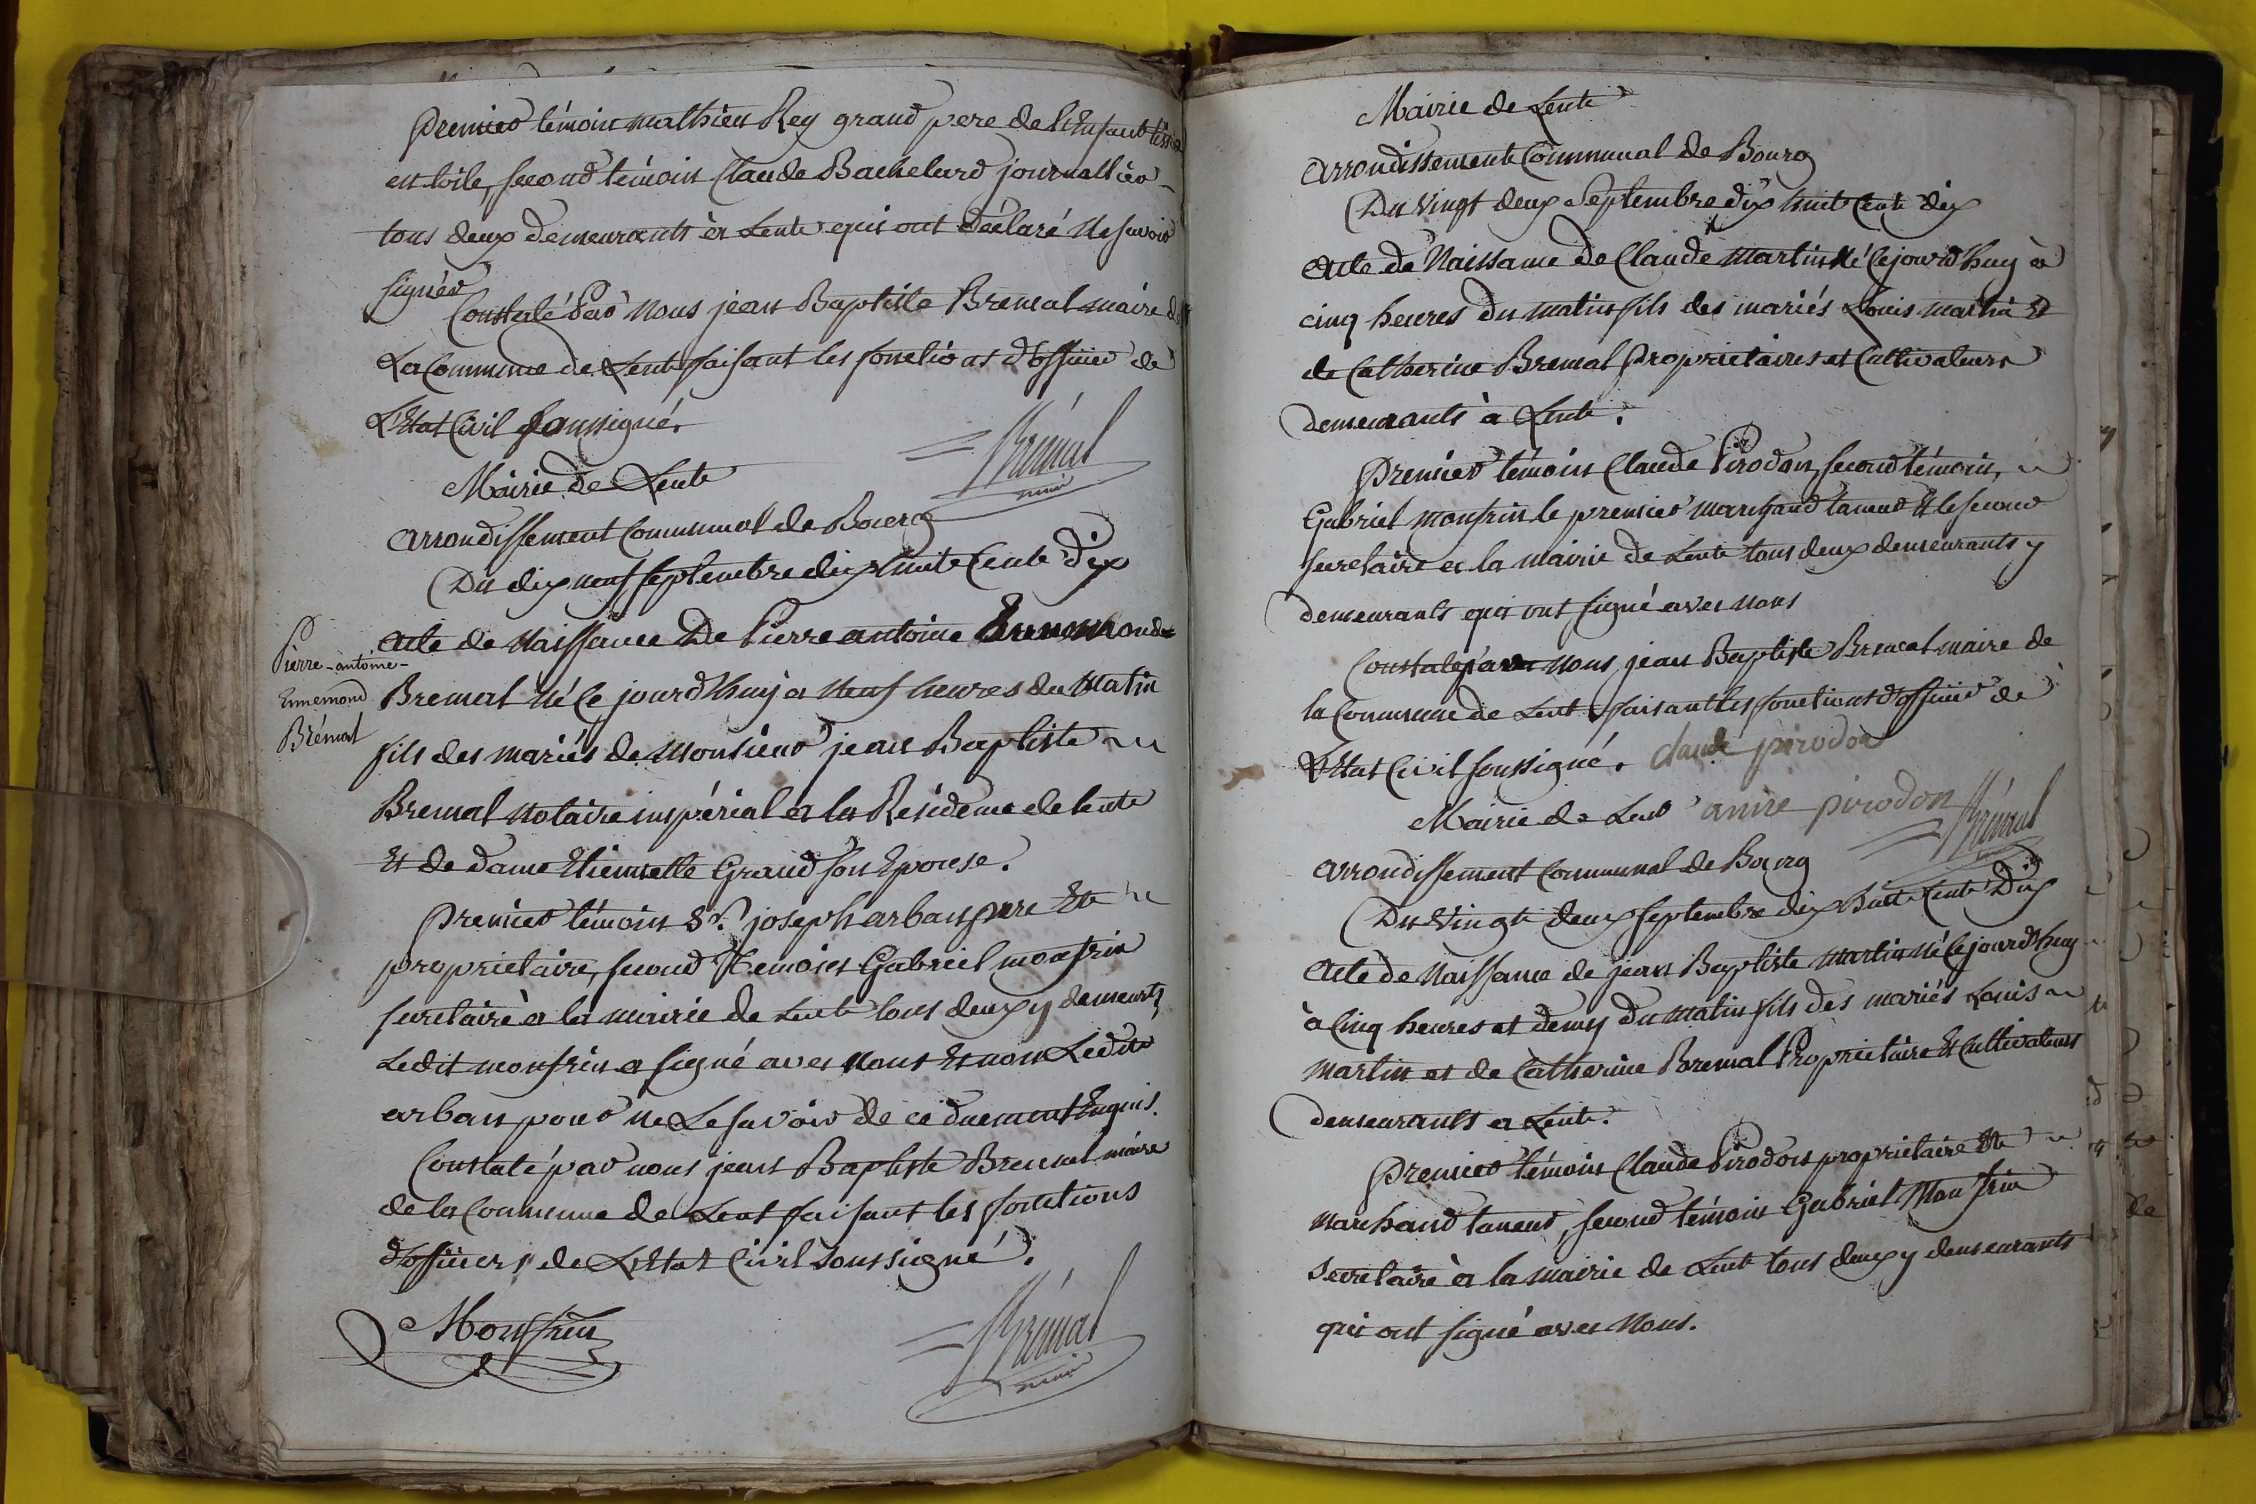 Premier témoin mathieu Rey grand pere de l'Enfant
en toile, second témoin Claude Bachelard journallier
tous deux demeurants à Lent qui ont déclaré ne savoir
signer
Constaté Par nous jean Baptiste Bremal maire de
La Commune de Lent faisant les fonctions d'officier de
L'Etat Civil soussigné.
Brémal
maire
Mairie de Lent
arrondissement Communal de Bourg
Du dix neuf septembre dix huit Cent dix
Pierre-antoine-
Ennemond
Brémal
acte de Naissance De Pierre antoine Ennemond
Bremal né Ce jourd'huy a neuf heures du Matin
fils des mariés de Monsieur jean Baptiste
Bremal notaire impérial a la Residence de lent
Et de dame Etiennette Grand son Epouse.
Premier témoin Sr. joseph arban pere Et
proprietaire, second Temoin Gabriel monfrin
secretaire a la mairie de Lent tous deux y demeurts
Ledit monfrin a signé avec nous Et non Ledit
arban pour ne Le savoir de ce duement Enquis.
Constaté par nous jean Baptiste Bremal maire
de la Commune de Lent faisant les fonctions
d'officier de L'Etat Civil soussigné.
Monfrin
Brémal
maire
Mairie de Lent
arrondissement Communal de Bourg
Du vingt deux Septembre dix huit Cent dix
acte de Naissance de Claude Martin né Cejourd'huy à
cinq heures du matin fils des mariés Louis martin Et
de Catherine Bremal Proprietaires et Cultivateurs
demeurants à Lent.
Premier témoin Claude Pirodon, second témoin,
Gabriel monfrin le premier marchand taneur Et le second
secretaire a la mairie de Lent tous deux demeurants y
demeurants qui ont signé avec nous
Constaté par nous jean Baptiste Bremal maire de
la Commune de Lent faisant les fonctions d'officier de
L'Etat Civil soussigné. claude pirodon
Mairie de Lent anne pirodon Brémal
arrondissement Communal de Bourg
Du Vingt deux septembre dix huit Cent Dix
acte de Naissance de jean Baptiste Martin né Cejourd'huy
à Cinq heures et demy du matin fils des mariés Louis
Martin et de Catherine Bremal Proprietaire Et Cultivateurs
demeurants a Lent.
Premier témoin Claude Pirodon proprietaire Et
marchand taneur, second témoin Gabriel Monfrin
secretaire à la mairie de Lent tous deux y demeurants
qui ont signé avec nous.